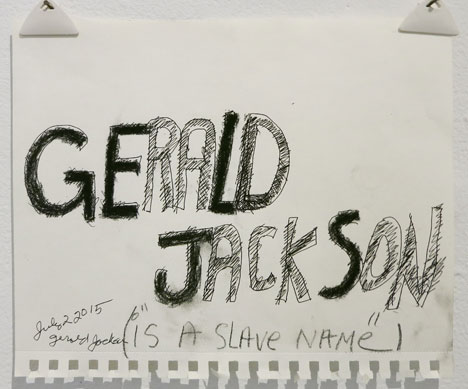 GERALD
JACKSON
July 2 2015
gerald Jackson
("IS A SLAVE NAME")